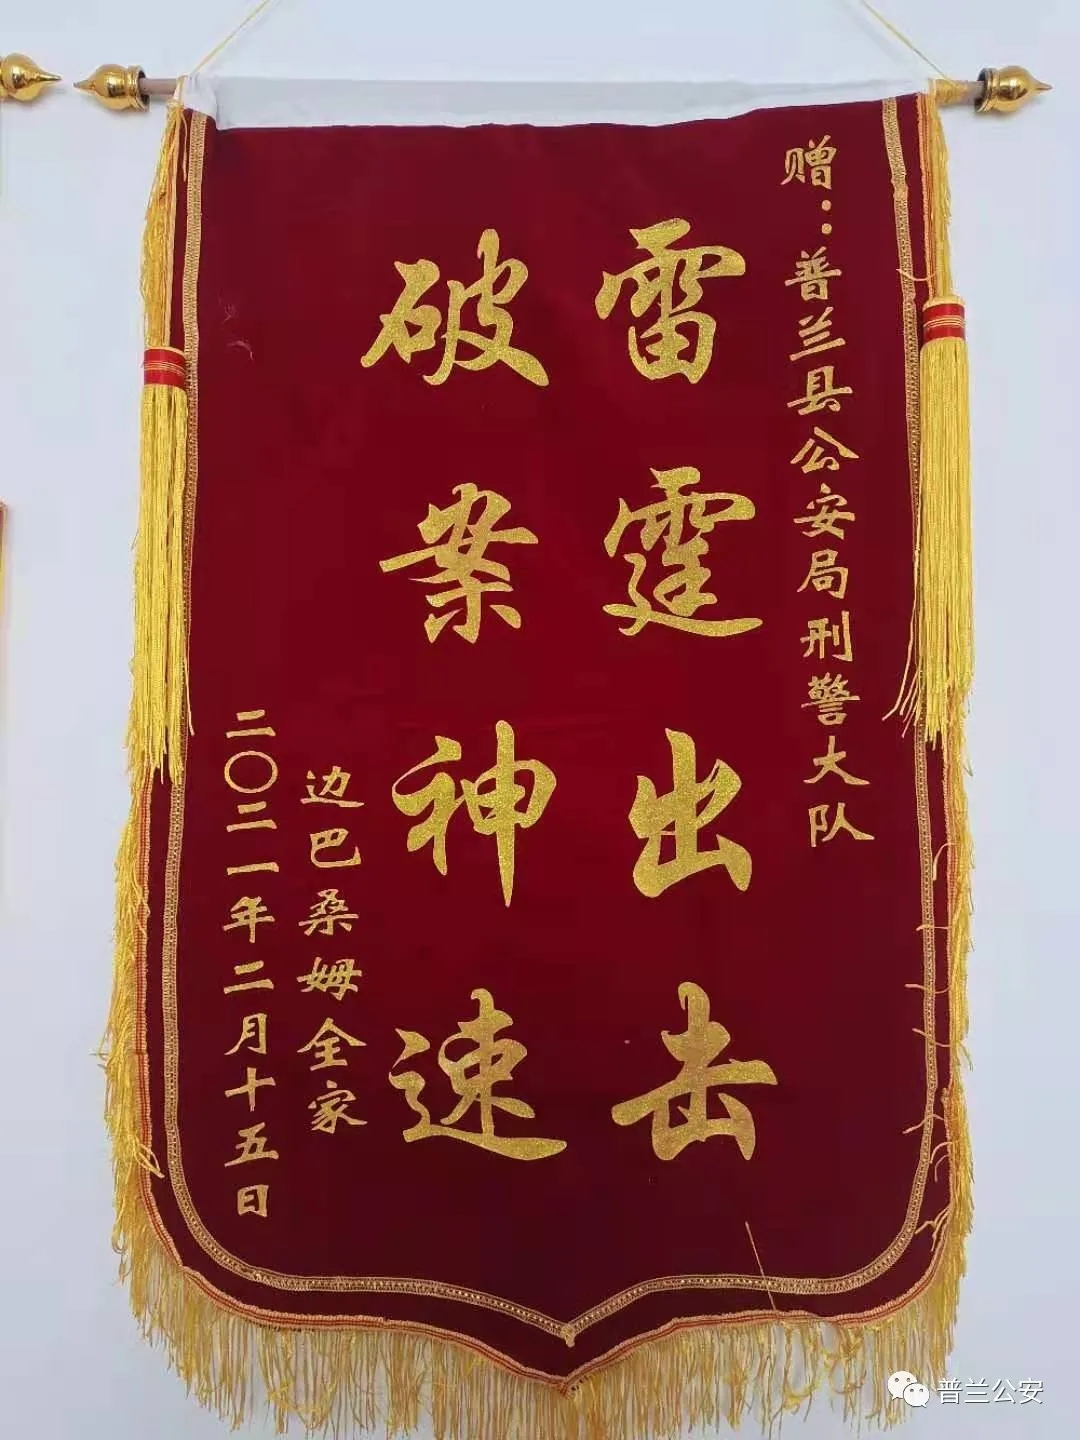 赠：普兰县公安局刑警大队
雷霆出击
破案神速
边巴桑姆全家
二〇二一年二月十五日
普兰公安